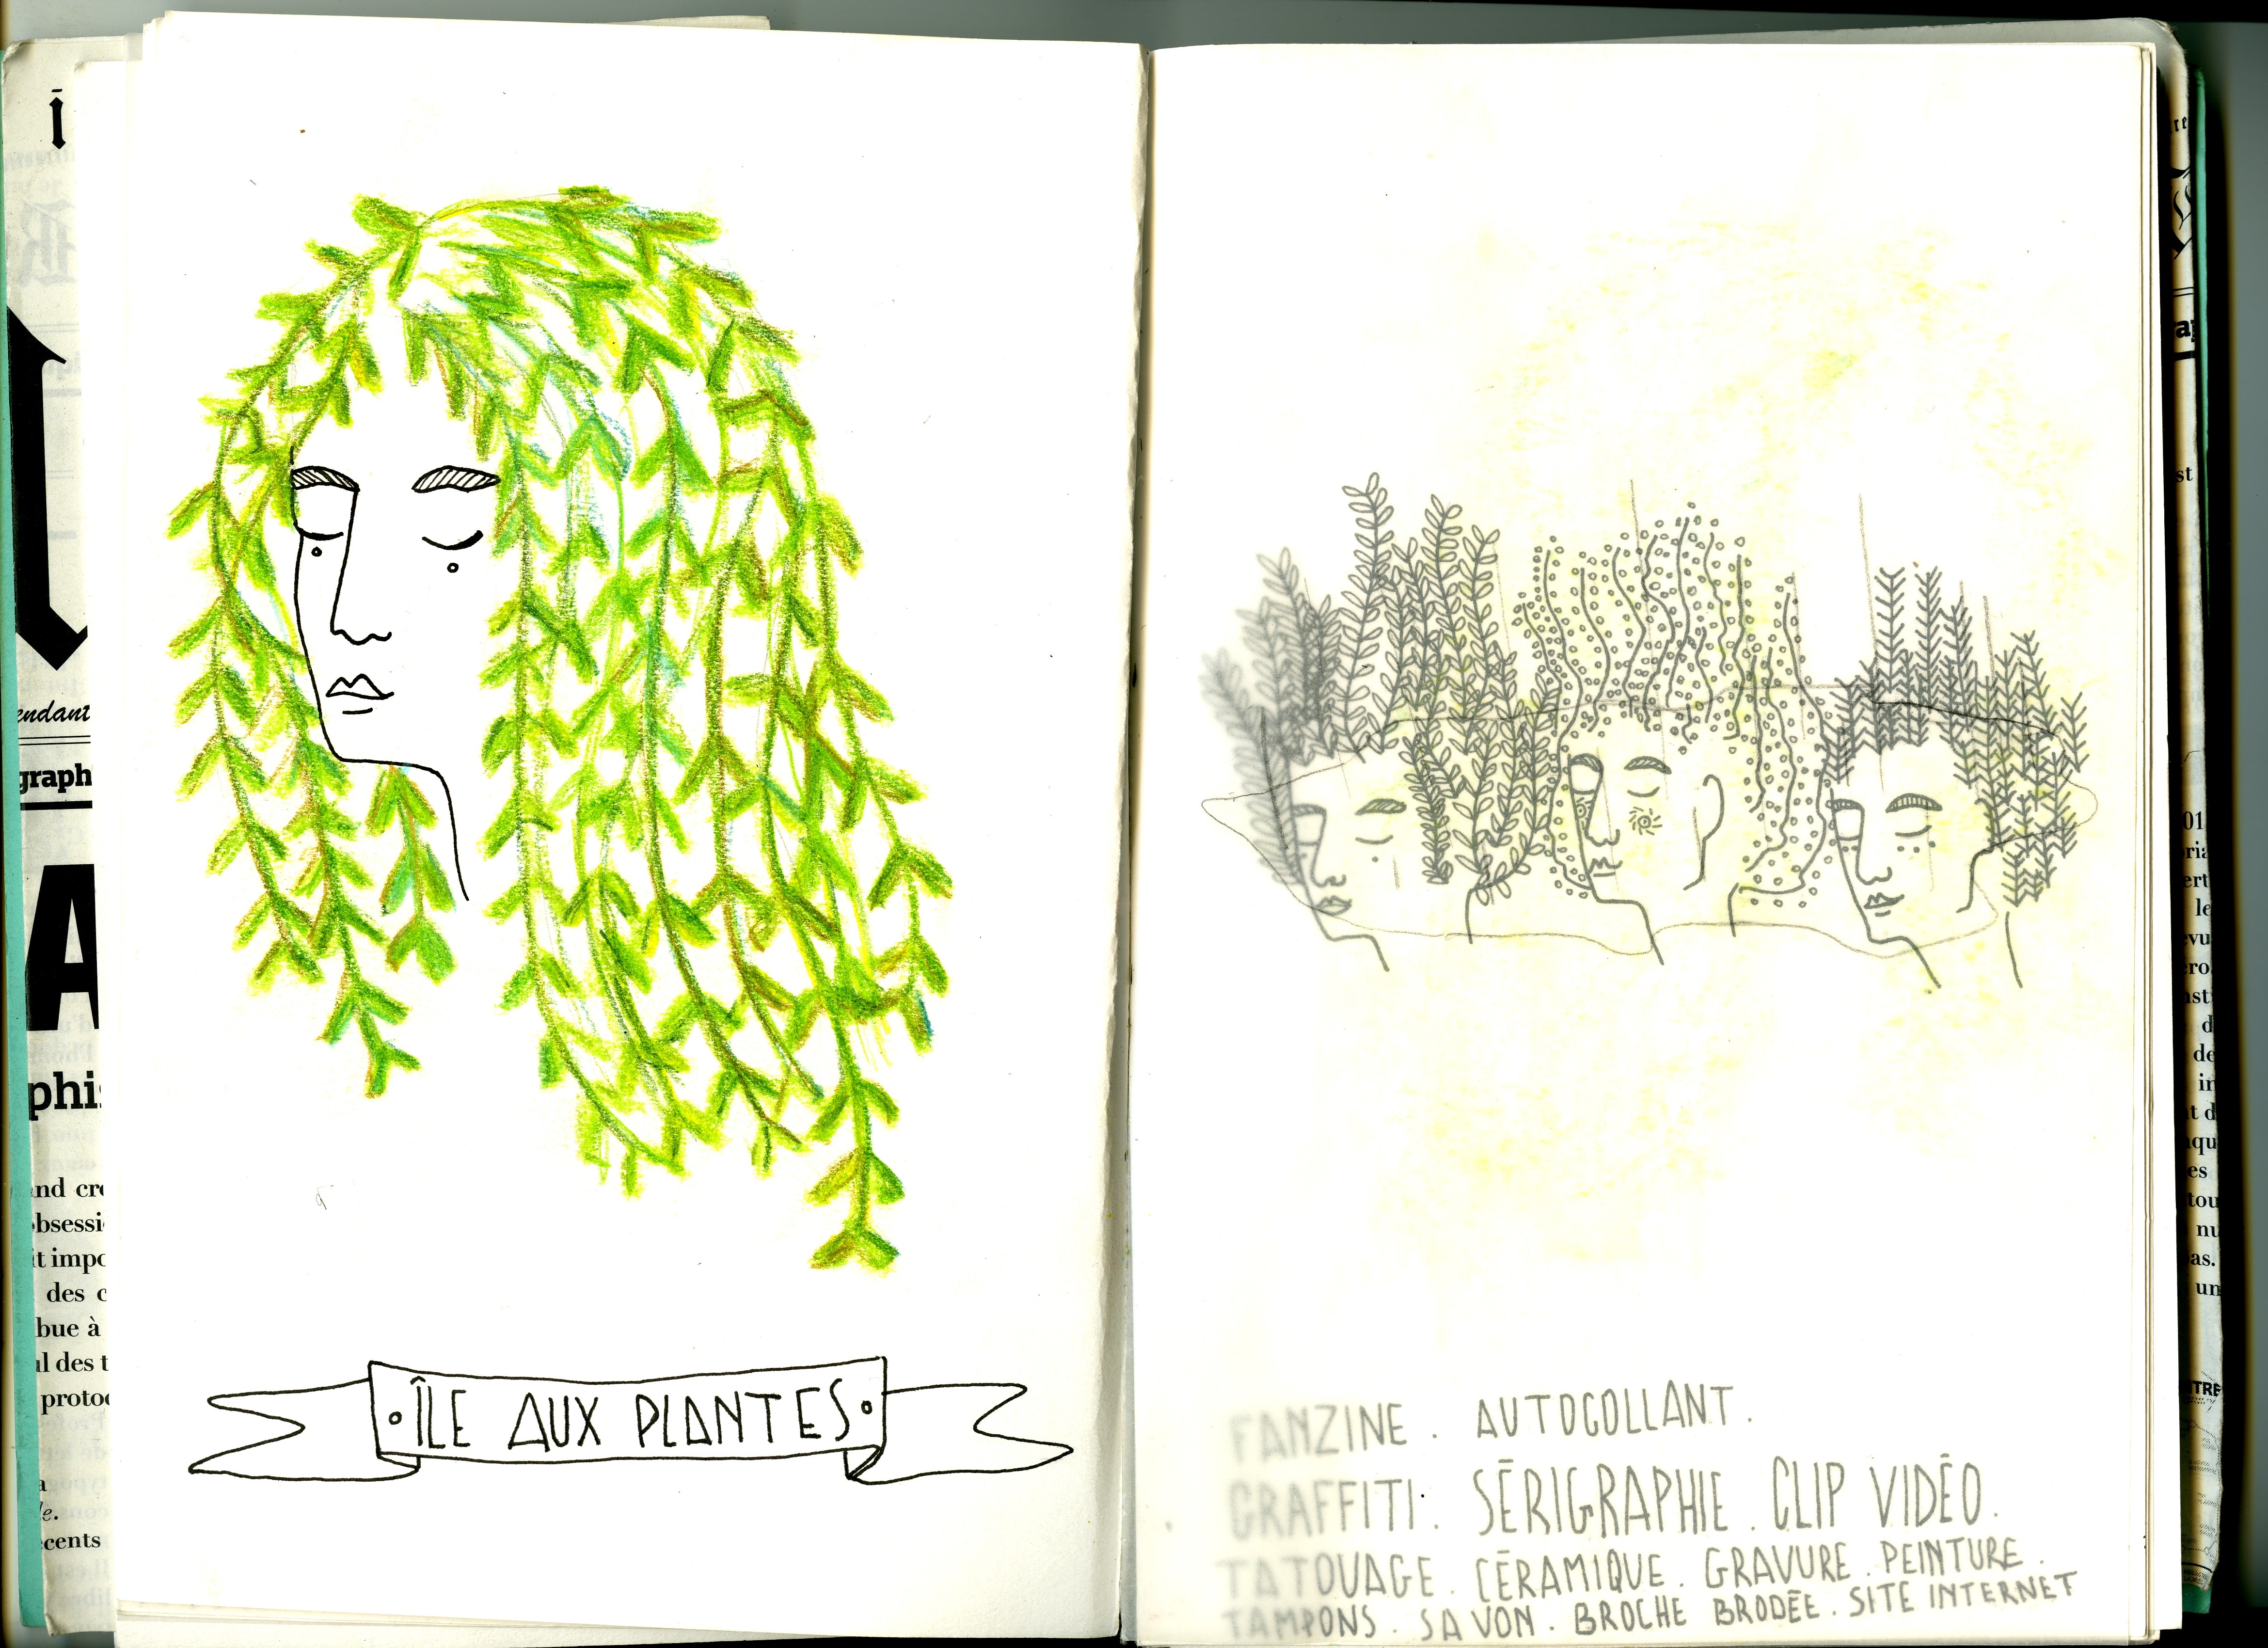 endant
graph
A
phi
and cre
obsessi
it impo
des c
bue à
ul des t
protoc
le.
cents
ÎLE AUX PLANTES
FANZINE . AUTOCOLLANT .
GRAFFITI . SÉRIGRAPHIE . CLIP VIDÉO .
TATOUAGE . CÉRAMIQUE . GRAVURE . PEINTURE .
TAMPONS . SAVON . BROCHE BRODÉE . SITE INTERNET